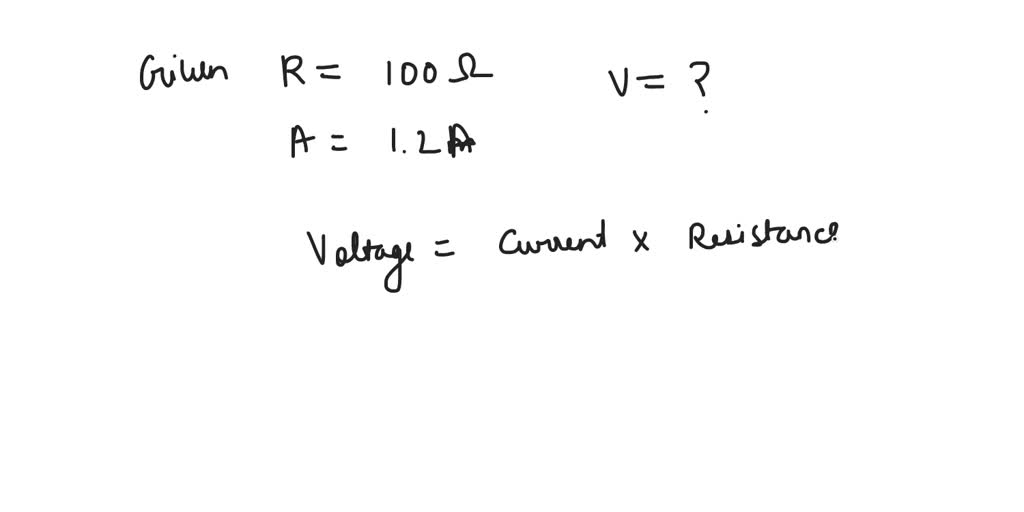 Given R = 100 Ω V = ?
A = 1.2 A
Voltage = Current x Resistance